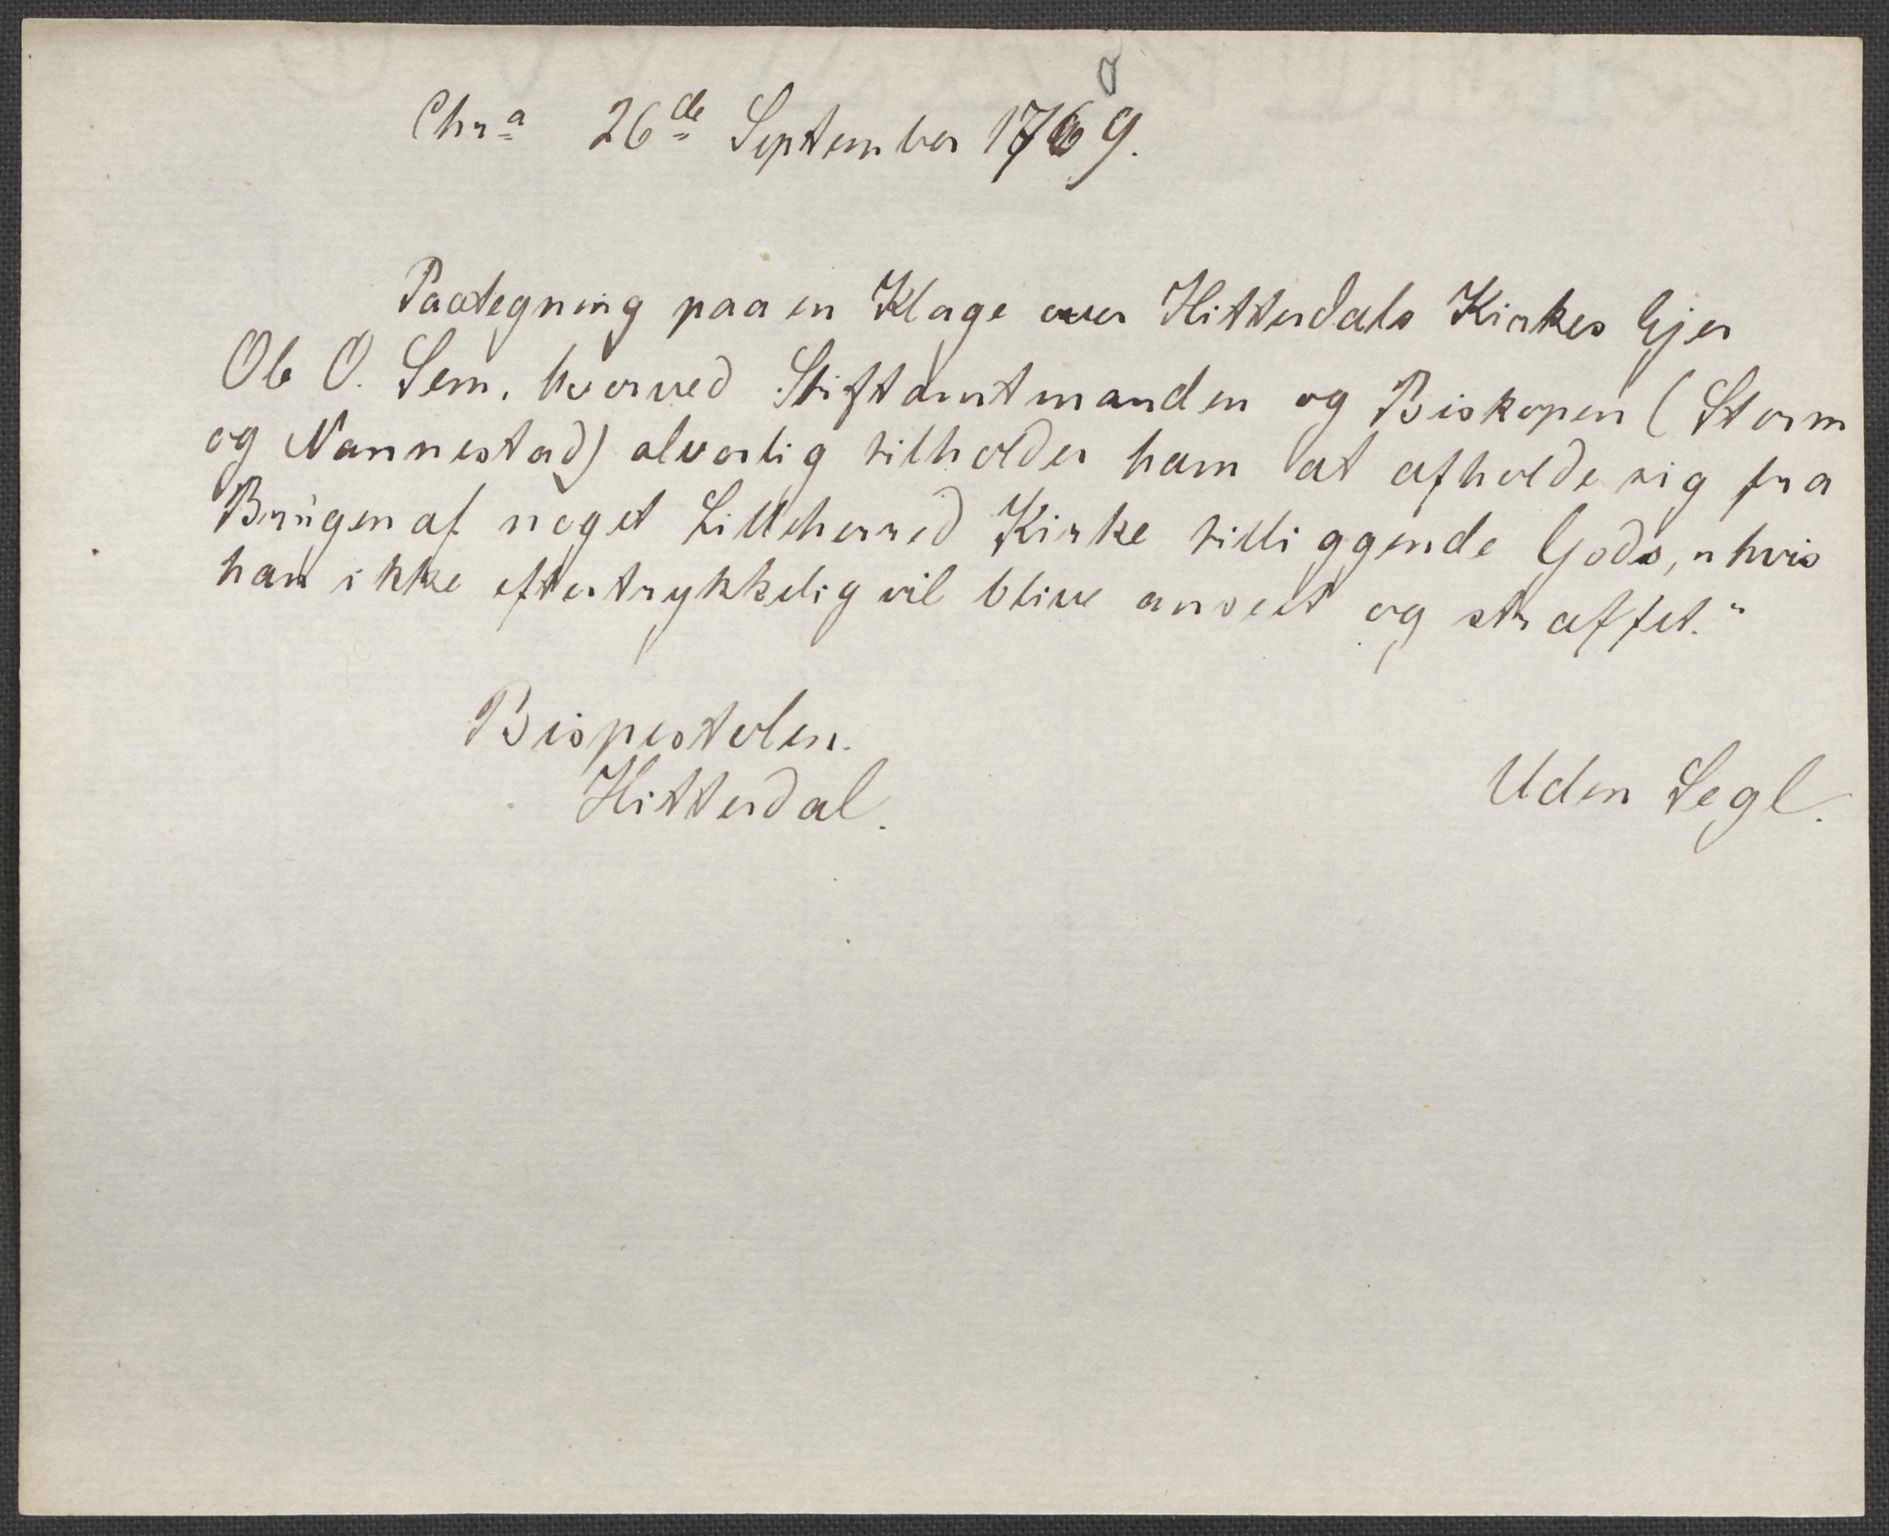 a
Chr.ª 26de September 1769.
Paategning paa en Klage over Hitterdals Kirkes Ejer
Ole O. Sem, hvorved Stiftamtmanden og Biskopen (Storm
og Nannestad) alvorlig tilholder ham at afholde sig fra
Brugen af noget Lilleherred Kirke tilliggende Gods, „hvis
han ikke eftertrykkelig vil blive anseet og straffet."
Bispestolen.
Hitterdal.
Uden Segl.